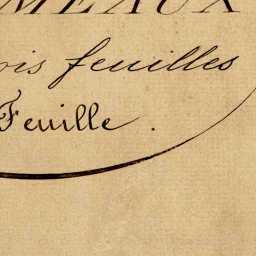 MEAUX
ois feuilles
Feuille.